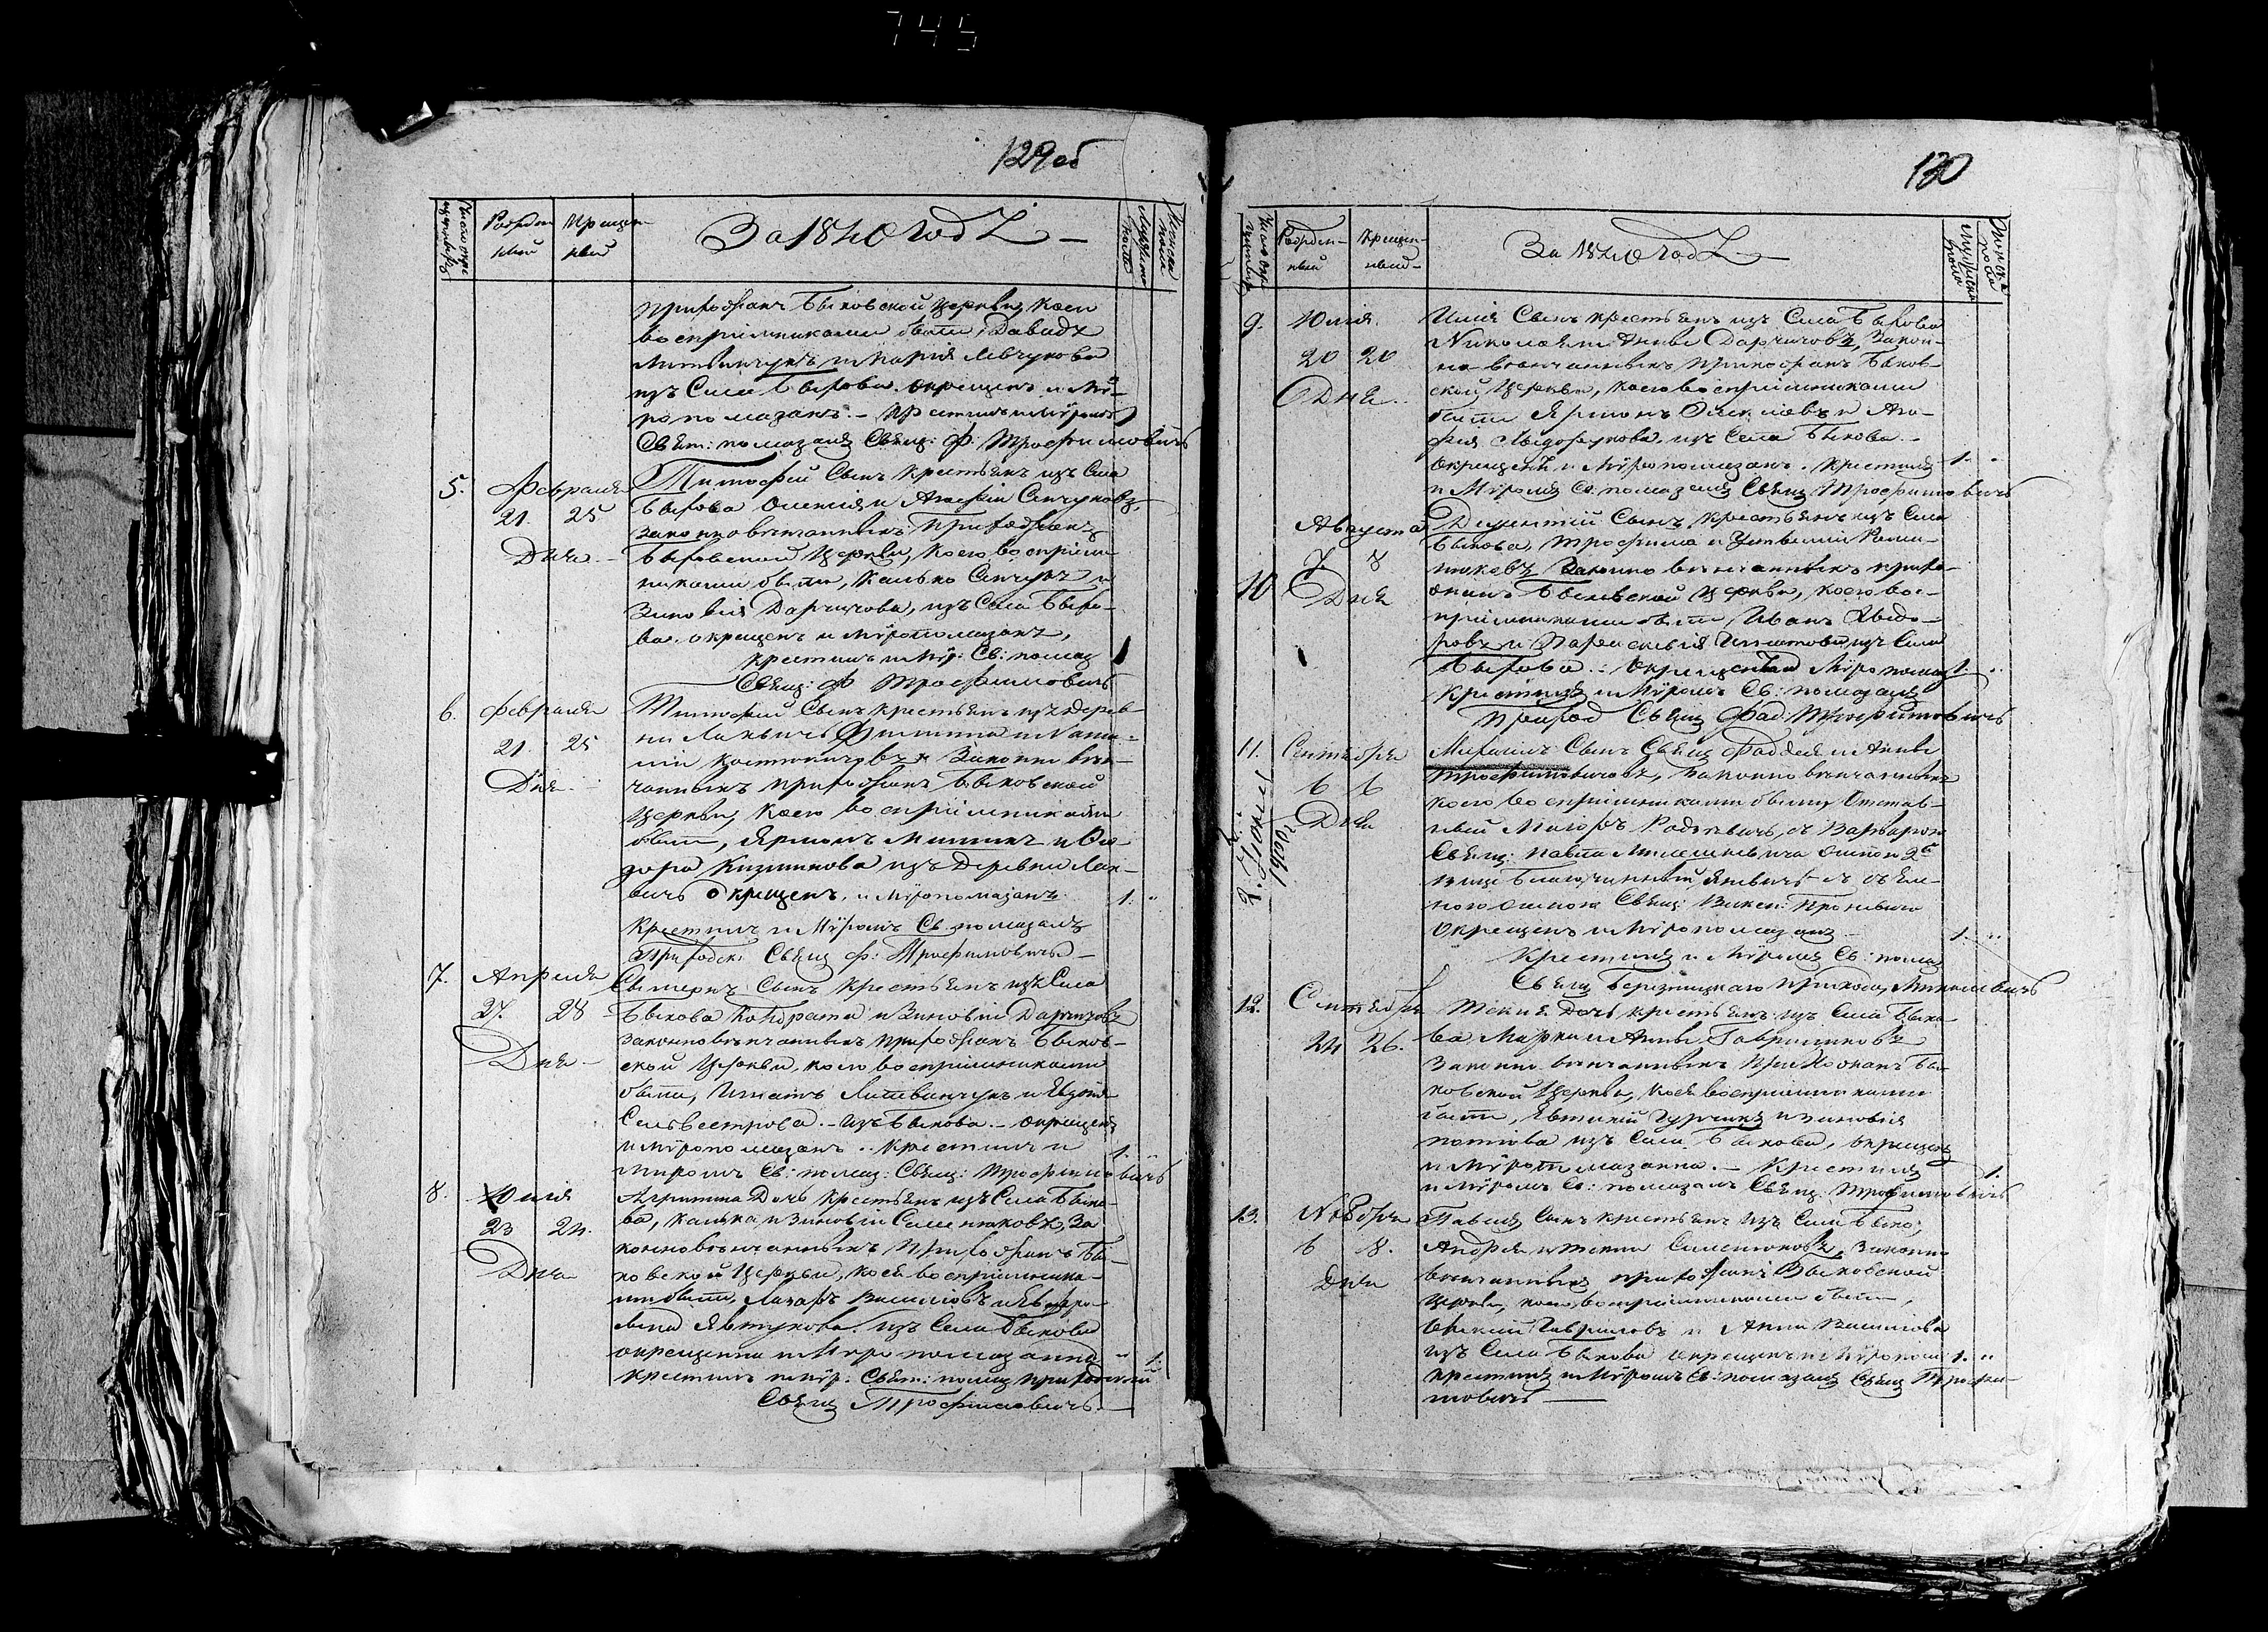 745
129 об
Рожден Крещен
ный ный
За 1840 годъ
прихожанъ Быховской церкви, коего
воспріемниками были, Давидъ
Литвинчукъ и Марія Левчукова
изъ Села Быхова. окрещенъ и Мѵ-
ропомазанъ. - Крестилъ и Мѵромъ
Свят: помазалъ Свящ: Ф: Трофимовичъ
5. Февраля 21. 25 Дня
Тимофей Сынъ крестьянъ изъ Села
Быхова Алексія и Агафіи Сенчуковъ,
законновенчанныхъ прихожанъ
Быховской Церкви, коего воспріем-
никами были, Калько Сенчукъ и
Зиновія Дарчичова, изъ Села Быхо-
ва. окрещенъ и мѵропомазанъ,
крестилъ и мѵр: Св: помаз
Свящ: Ф Трофимовичъ
6. Февраля 21. 25 Дня
Тимофей Сынъ крестьянъ изъ дерев-
ни Филиппа и
Законно вен-
чанныхъ прихожанъ Быховской
Церкви, коего воспріемниками
были, Ярмолъ и Ѳео-
дора изъ Деревни Лак-
вичъ окрещенъ, и мѵропомазанъ 1. "
Крестилъ и Мѵромъ Св. помазалъ
Приходск: Свящ Ф: Трофимовичъ
7. Апреля 27. 28 Дня
Сынъ крестьянъ изъ Села
Быхова Кондрата и Зиновіи Дарчичовъ
законновенчанныхъ прихожанъ Быхов-
ской Церкви, коего воспріемниками
были, Игнатъ Литвинчукъ и Евдокія
Сельвестрова. - изъ Быхова. - окрещенъ
и мѵропомазанъ.. крестилъ и 1.
миромъ Св: помаз: Свящ: Трофимовичъ
8. Юлія 23 24. Дня
Агрипина Дочь крестьянъ изъ Села Быхо-
ва, Калька и Зиновіи Семенюковъ, за
конновенчанныхъ прихожанъ Бы-
ховской Церкви, коея воспріемника-
ми были, Лазаръ Василювъ и Ефро-
сина Явтухова. изъ Села Быхова
окрещенна и Миропомазанна " 1.
крестилъ и мѵр. Свят: помаз приходскій
Свящ Трофимовичъ.
130
Рожден- Крещен-
ный ный
За 1840 годъ
9. Юлія. 20 20 Дня
Илія Сынъ крестьянъ изъ Села Быхова
Николая и Анны Дарчичовъ, Закон-
но венчанныхъ прихожанъ Быхов-
ской Церкви, коего воспріемниками
были Ярмолъ и Ага-
фія изъ Села Быхова. -
окрещенъ и Мѵропомазанъ. крестилъ 1.
и Мѵромъ Св: помазалъ Свящ Трофимовичъ
10 Августа 7. 8 Дня
Дементій Сынъ крестьянъ изъ Села
Быхова, Трофима и Устиміи Рома-
нюковъ Законно венчанныхъ прихо-
жанъ Быховской церкви, коего вос-
пріемниками были, Иванъ Хведо-
ровъ и Параскевія Игнатова изъ Села
Быхова.. Окрещенъ и Мѵропомаз 1. "
Крестилъ и Мѵромъ Св: помазалъ
приход Свящ Фад: Трофимовичъ
11. Сентября 6 6 Дня
Михаилъ Сынъ Свящ Фаддея и Анны
Трофимовичовъ, Законно венчанныхъ
коего воспріемниками были, Отстав-
ный Маіоръ съ Варварою
Свящ: Павла
Благочинный съ
Свящ:
Окрещенъ и Мѵропомазанъ 1. "
Крестилъ и Мѵромъ Св: помаз
Свящ прихода,
12. Сентября 24 26.
Текля Дочь крестьянъ изъ Села Быхо
ва Марка и Анны Гаврилюковъ
Законно венчанныхъ прихожанъ Бы-
ховской Церкви, коея воспріемниками
были, и Зиновія
изъ Села Быхова, окрещен
и Мѵропомазанна. - Крестилъ 1.
и Мѵромъ Св: помазалъ Свящ Трофимовичъ
13. Ноября 6 8. Дня
Павелъ Сынъ крестьянъ изъ Села Быхо,
Андрея и Текли Семенюковъ, Законно
венчанныхъ прихожанъ Быховской
Церкви, коего воспріемниками были,
Гавриловъ и Анна Василюва
изъ Села Быхова окрещенъ и Мѵропом 1. "
крестилъ и Мѵромъ Св: помазалъ Свящ Трофи-
мовичъ